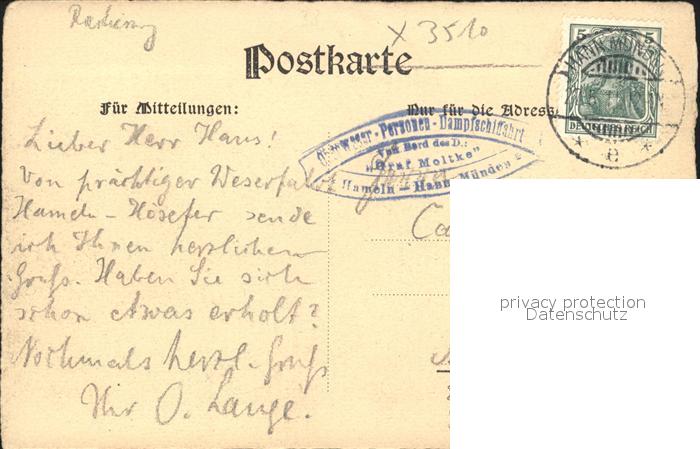 X 3510
Postkarte
Für Mitteilungen:
Nur für die Adress
5 5
DEUTSCHES REICH
HANN. MÜNDEN
* e *
Oberweser-Personen-Dampfschiffahrt
Von Bord des D.:
"Graf Moltke"
Hameln - Hann. Münden
Lieber Herr Hans!
Von prächtiger Weserfahrt
Hameln - Höxter sende
ich Ihnen herzlichen
Gruß. Haben Sie sich
schon etwas erholt?
Nochmals herzl. Gruß
Ihr O. Lange.
Ca
privacy protection
Datenschutz